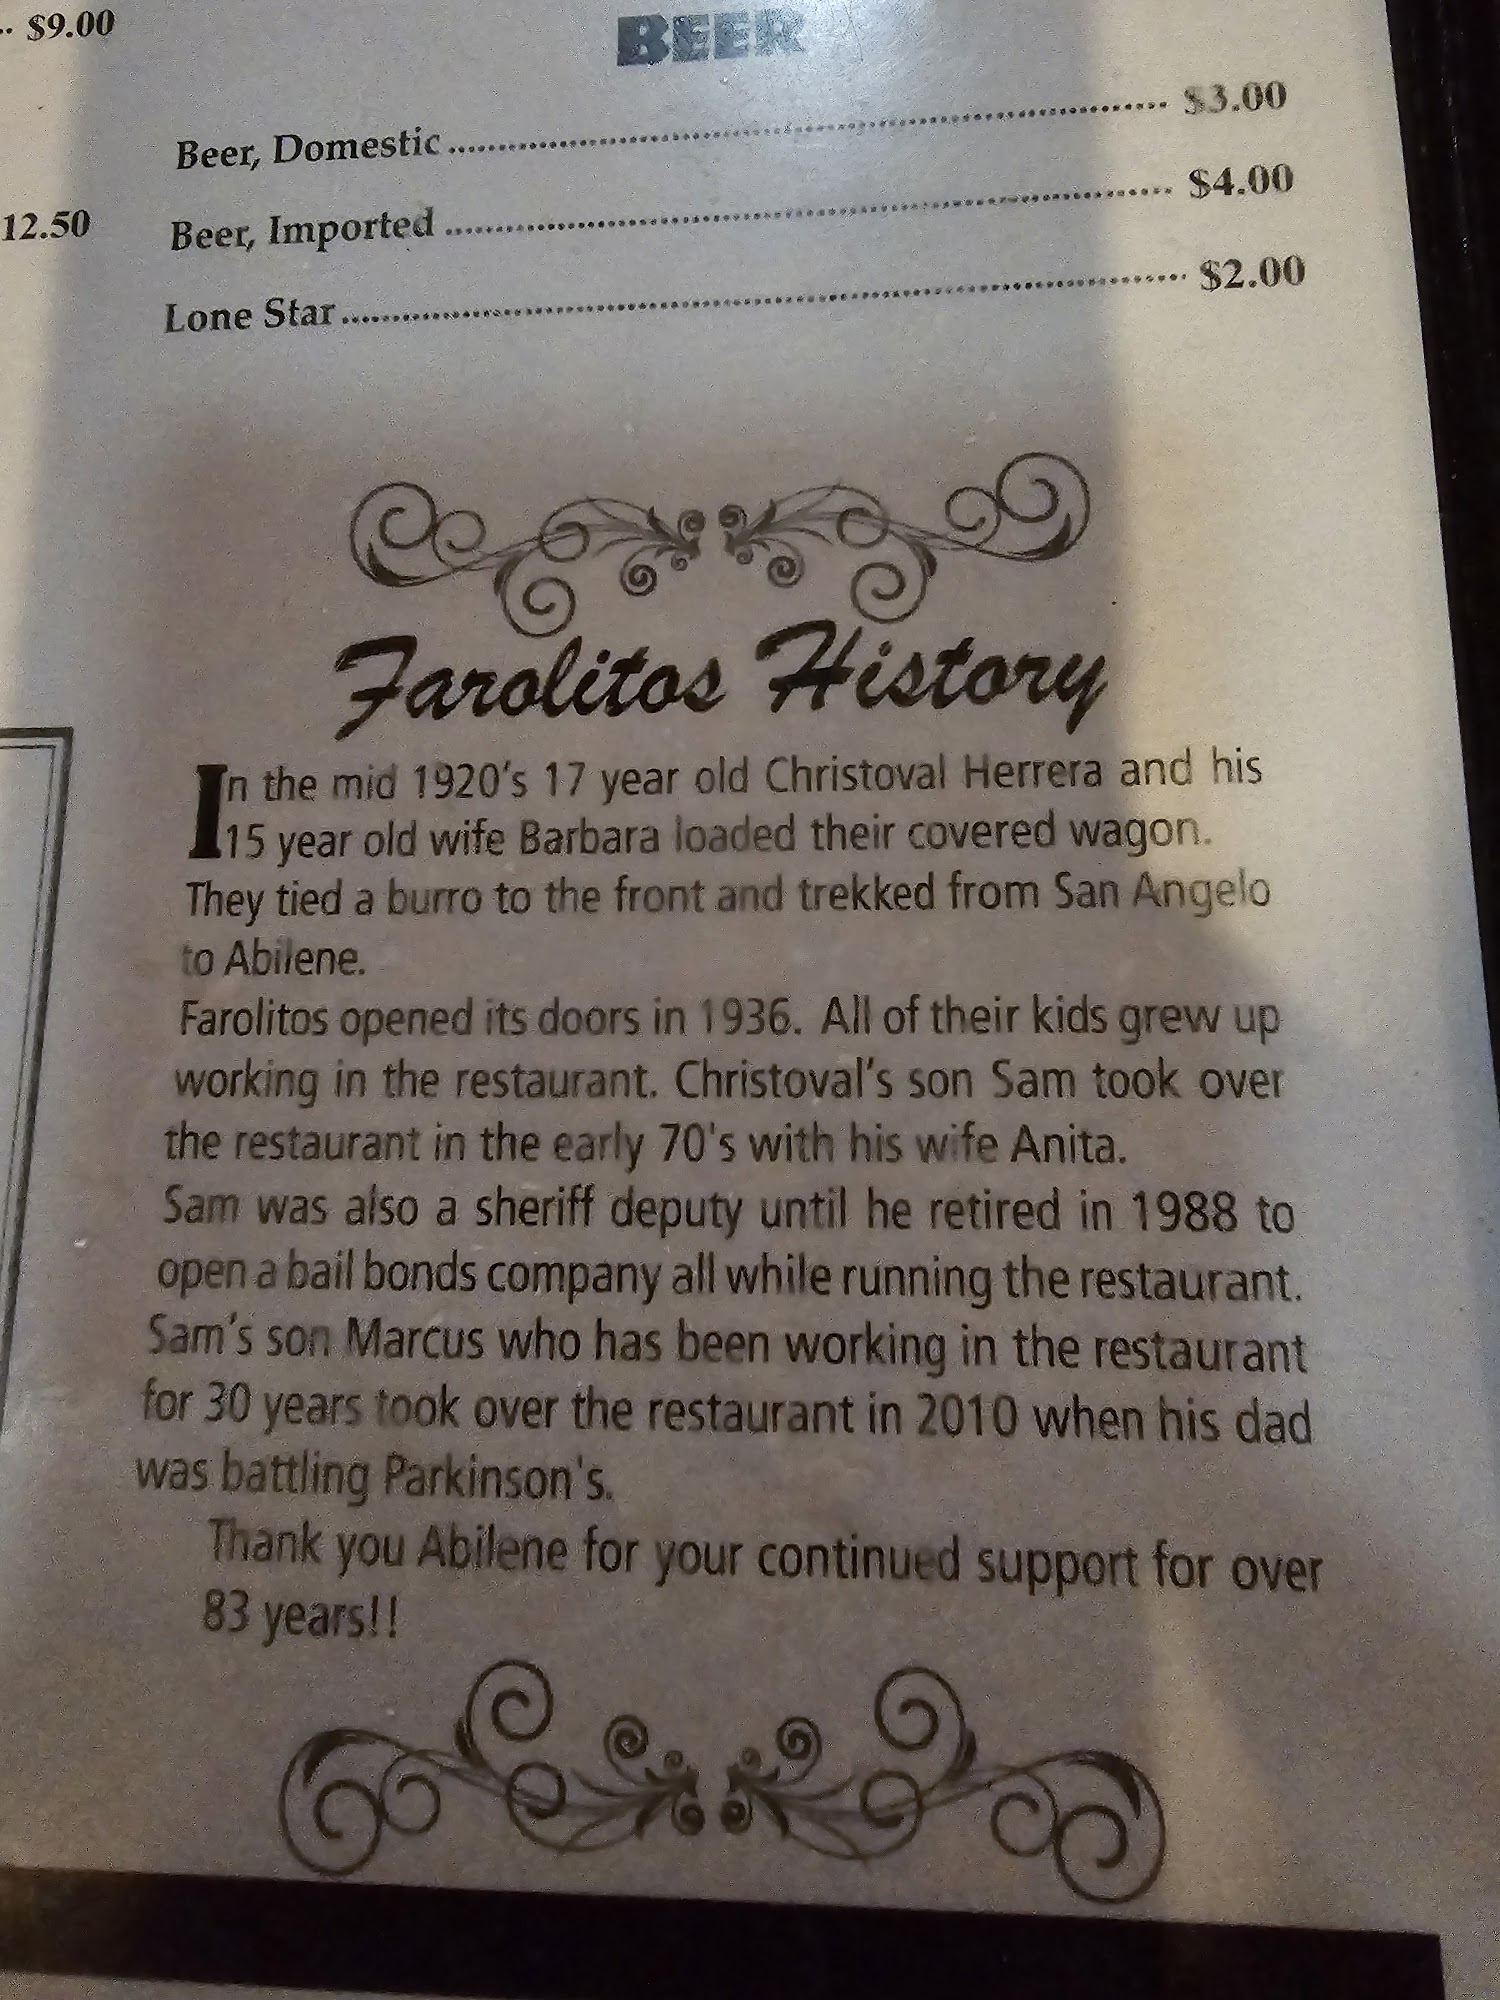 .. $9.00
12.50
BEER
Beer, Domestic........................ $3.00
Beer, Imported........................ $4.00
Lone Star........................ $2.00
Farolitos History
In the mid 1920's 17 year old Christoval Herrera and his
15 year old wife Barbara loaded their covered wagon.
They tied a burro to the front and trekked from San Angelo
to Abilene.
Farolitos opened its doors in 1936. All of their kids grew up
working in the restaurant. Christoval's son Sam took over
the restaurant in the early 70's with his wife Anita.
Sam was also a sheriff deputy until he retired in 1988 to
open a bail bonds company all while running the restaurant.
Sam's son Marcus who has been working in the restaurant
for 30 years took over the restaurant in 2010 when his dad
was battling Parkinson's.
Thank you Abilene for your continued support for over
83 years!!